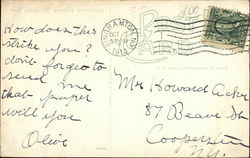 BINGHAMTON, N.Y.
OCT
1914
How does this
strike you?
don't forget to
send me
that paper
will you
Olive
Mr Howard Acker
87 Beaver St
Cooperstown
N.Y.